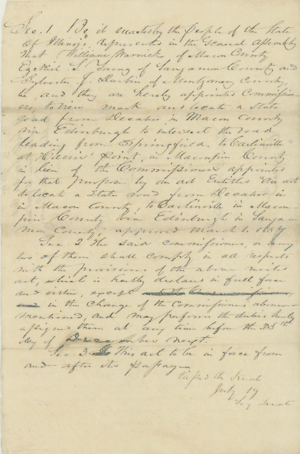 Sec. 1 Be it enacted by the People of the State
of Illinois, represented in the General Assembly
That William Warnick of Macon County
Ezekiel S. of Sangamon County and
of Montgomery County
be and they are hereby appointed Commission
ers, to view mark and locate a State
road from Decatur in Macon County
via Edinburgh to intersect the road
leading from Springfield to Carlinville
at Point, in Macoupin County
in lieu of the Commissioners appointed
for that purpose by an act Entitled "An act
to locate a State road from Decatur in
in Macon County, to Carlinville in Macou
pin County via Edinburgh in Sanga
mon County," approved March 1, 1847
Sec 2 The said commissioners, or any
two of them shall comply in all respects
with the provisions of the above recited
act, which is hereby declared in full force
except
in the change of the Commissioners above
mentioned, and may perform the duties hereby
assigned them at any time before the 25th
day of December next.
Sec. 3 This act to be in force from
and after its passage
July 17